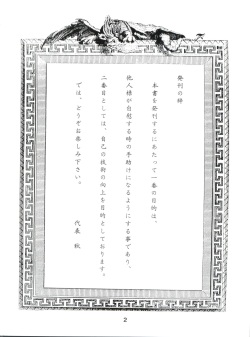 発刊の辞
本書を発刊するにあたって一番の目的は、
他人様が自慰する時の手助けになるようにする事であり、
二番目としては、自己の技術の向上を目的としております。
では、どうぞお楽しみ下さい。
代表 秋
2